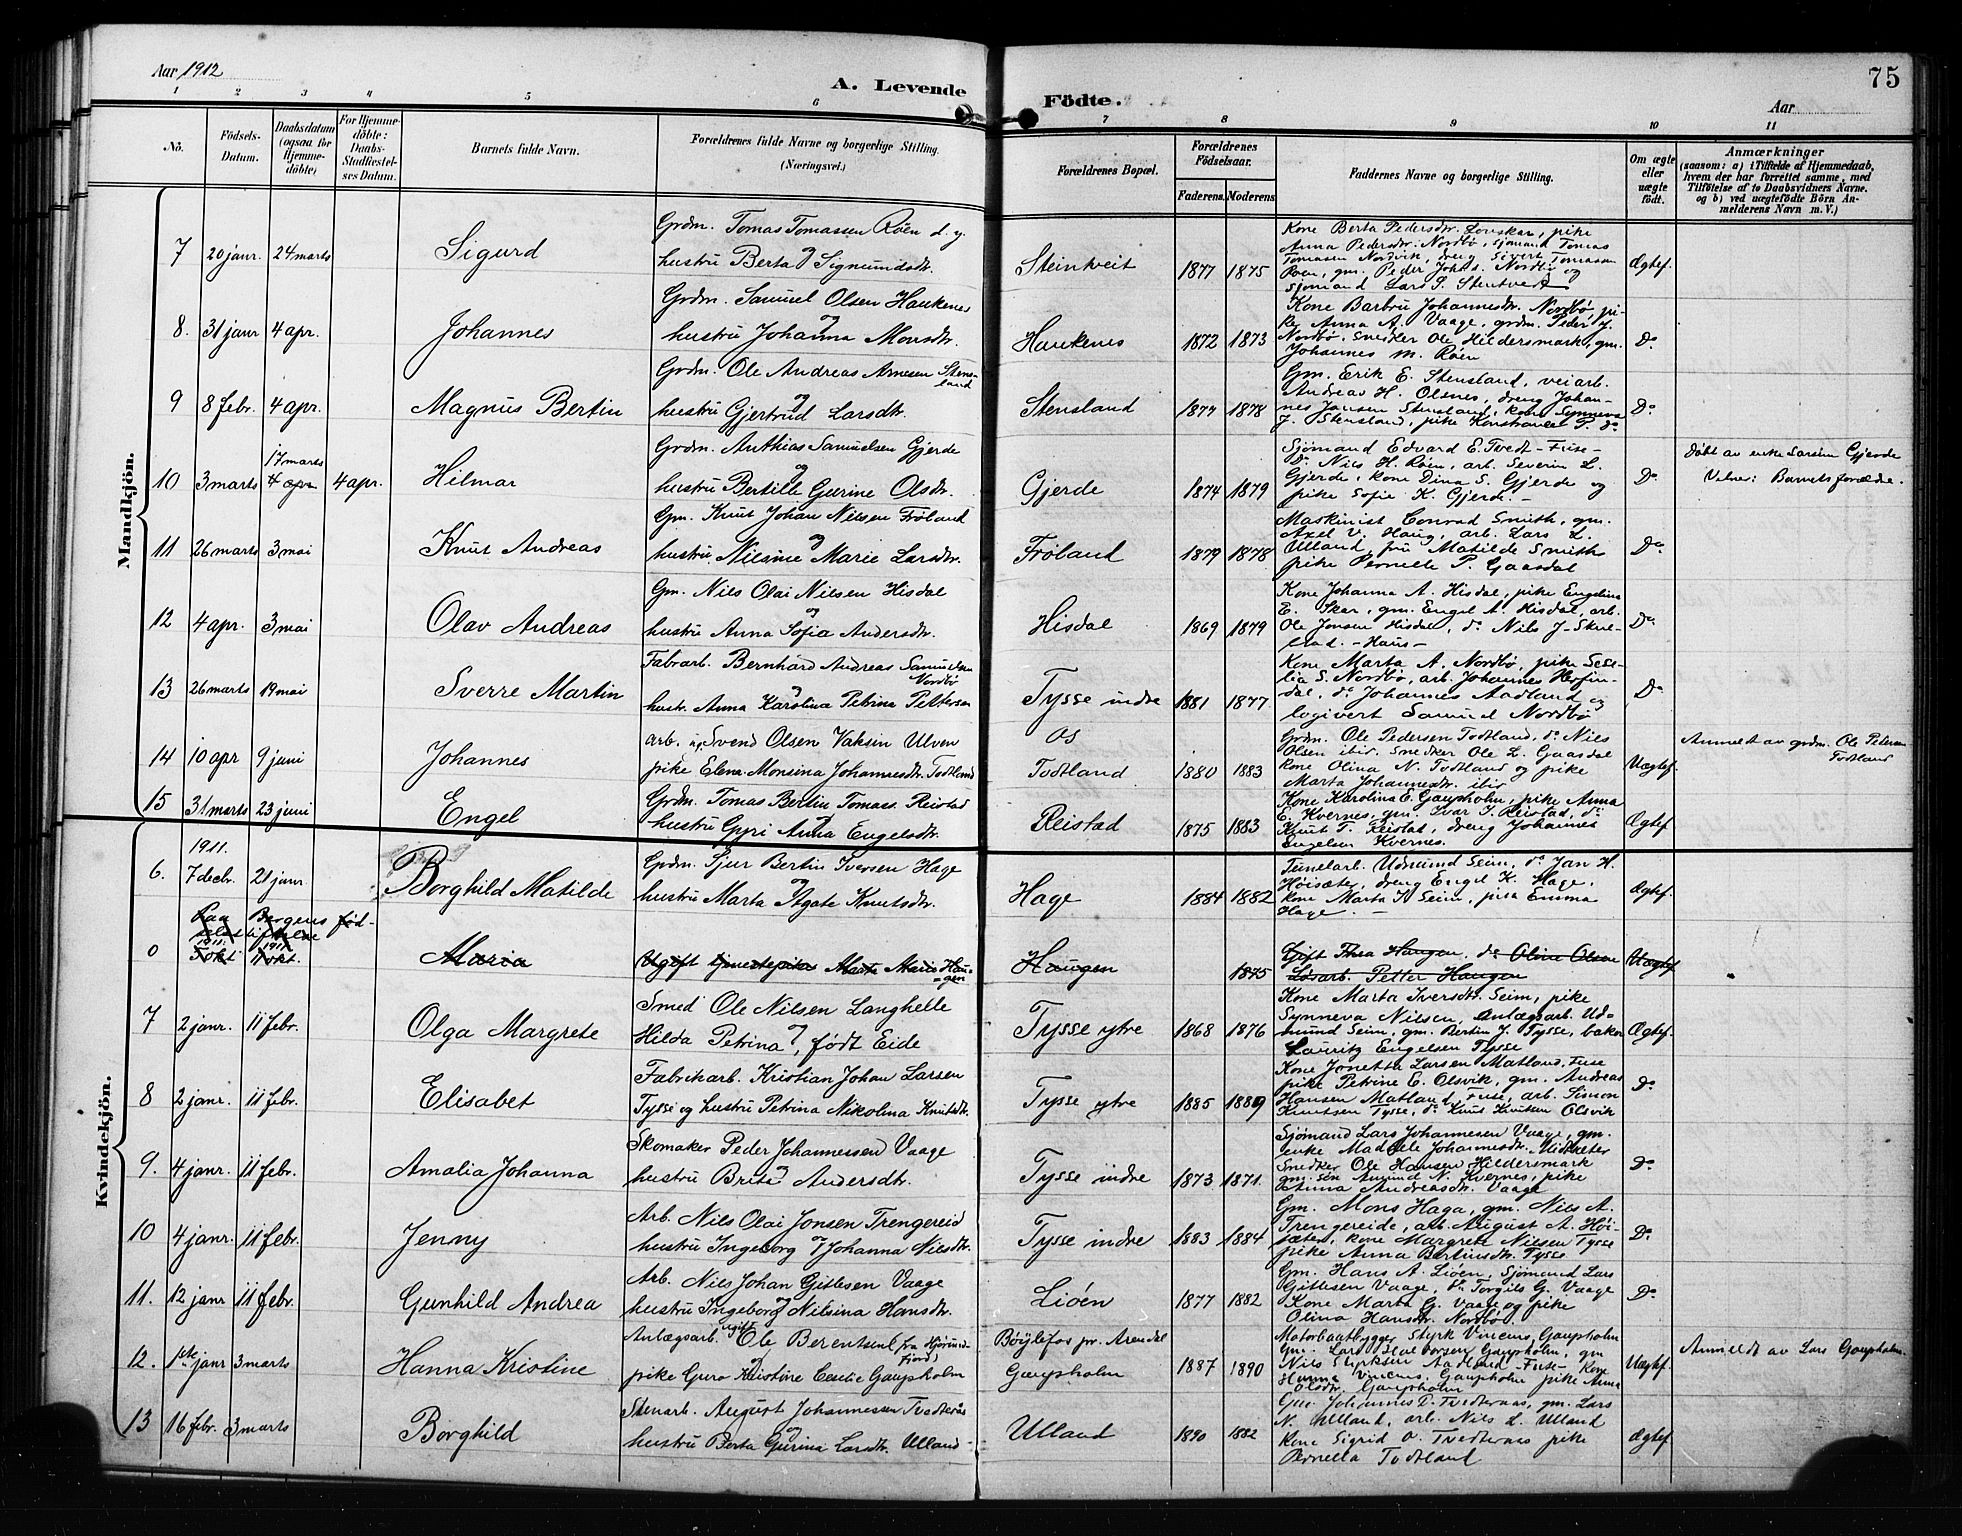 Aar 1912
A. Levende
Födte.
Aar
75
1 2 3 4 5 6 7 8 9 10 11
Nò.
Födsels-
Datum.
Daabsdatum
(ogsaa for
Hjemme-
döbte)
For Hjemme-
döbte:
Daabs-
Stadfæstel-
ses Datum.
Barnets fulde Navn.
Forældrenes fulde Navne og borgerlige Stilling.
(Næringsvei.)
Forældrenes Bopæl.
Forældrenes
Födselsaar.
Faderens. Moderens
Faddernes Navne og borgerlige Stilling.
Om ægte
eller
uægte
født.
Anmærkninger
(saasom: a) i Tilfælde af Hjemmedaab,
hvem der har forrettet samme, med
Tilföielse af to Daabsvidners Navne.
og b) ved uægtefødte Börn An-
melderens Navn m. V.)
Mandkjön.
7 20 janr. 24 marts
Sigurd
Grdm. Tomas Tomassen Röen d. y.
og
hustru Berta Sigmundsdtr.
Steinkveit
1877 1875
Kone Berta Pedersdtr. Lönskar, pike
Anna Pedersdtr. Nordbö, sjömand Tomas
Tomasen Nordvik, dreng Sivert Tomasen
Röen, gm. Peder Johs. Nordbö og
Sjömand Lars S. Stentvedt
Ægtef.
8. 31 janr 4 apr.
Johannes
Grdm. Samuel Olsen Haukenes
og
hustru Johanna Monsdtr.
Haukenes
1872 1873
Kone Barbru Johannesdtr. Nordbø, pi-
ke Anna A. Vaage, grdm. Peder J.
Nordbø, Snedker Ole Hildersmark, gm.
Johannes M. Röen
Do
9 8 febr. 4 apr.
Magnus Bertin
Grdm. Ole Andreas Arnesen Stens-
land
og
hustru Gjertrud Larsdtr.
Stensland
1877 1878
Gm. Erik E. Stensland, veiarb.
Andreas H. Olsnes, dreng Johan-
nes Jansen Stensland, kone Synneva
J. Stensland, pike Konstanse P. do
Do
10 3 marts 17 marts
4 apr 4 apr.
Hilmar
Grdm. Anthias Samuelsen Gjerde
og
hustru Bertille Gurine Olsdtr.
Gjerde
1874 1879
Sjømand Edvard E. Tvedt - Fuse -
Do Nils H. Röen, arb. Severin L.
Gjerde, kone Dina S. Gjerde og
pike Sofie K. Gjerde. -
Do
Døbt av enke Larsine Gjerde
Vidner: Barnets forældre.
11 26 marts 3 mai
Knut Andreas
Gm. Knut Johan Nilsen Frøland
og
hustru Nilsine Marie Larsdtr.
Frøland
1879 1878
Maskinist Conrad Smith, gm.
Axel V. Haug, arb. Lars L.
Ulland, fru Matilde Smith
pike Pernelle P. Gaasdal
Do
12 4 apr. 3 mai
Olav Andreas
Gm. Nils Olai Nilsen Hisdal
og
hustru Anna Sofia Andersdtr.
Hisdal
1869 1879
Kone Johanna A. Hisdal, pike Engelina
E. Skar, gm. Engel A. Hisdal, arb.
Ole Jonsen Hisdal, do Nils J. Skul-
stad. - Haus -
Do
13 26 marts 19 mai
Sverre Martin
Fabrarb. Bernhard Andreas Samuelsen
Nordbø
og
hustr. Anna Karolina Petrina Pettersen
Tysse indre
1881 1877
Kone Marta A. Nordbø, pike Sese-
lia S. Nordbø, arb. Johannes Herfin-
dal, do Johannes Aadland og
logivert Samuel Nordbø
Do
14 10 apr 9 juni
Johannes
arb. ug. Svend Olsen Vaksin Ulven
pike Elena Monsina Johannesdtr. Todtland
Os
Todtland
1880 1883
Grdm. Ole Pedersen Todtland, do Nils
Olsen ibid. Snedker Ole L. Gaasdal
kone Olina N. Todtland og pike
Marta Johannesdtr. ibid
Uægtef.
Anmeldt av grdm. Ole Petersen
Todtland
15 31 marts 23 juni
Engel
Grdm. Tomas Bertin Tomass. Reistad
og
hustru Guri Anna Engelsdtr.
Reistad
1875 1883
Kone Karolina E. Gaupholm, pike Anna
E. Kvernes, gm. Ivar I. Reistad, do
Knut T. Reistad, dreng Johannes
Engelsen Kvernes.
Ægtef.
Kvindekjön.
1911.
6. 7 decbr. 21 janr
Borghild Matilde
Grdm. Sjur Bertin Iversen Hage
og
hustru Marta Agate Knutsdtr.
Hage
1884 1882
Tunelarb. Udmund Seim, do Jan H.
Høisæter, dreng Engel K. Hage.
Kone Marta K. Seim, pike Emma
Hage. -
Ægtef.
Paa Bergens fød-
selsstiftelse
0 1911. 1911.
5 okt 11 okt.
Maria
Ugift tjenestepike Marta Marie Hau-
gen
Haugen
1875
Gift Thea Haugen. do Oline Olsen
Løsarb. Petter Haugen
Uægtef.
7 2 janr. 11 febr.
Olga Margrete
Smed Ole Nilsen Langhelle
og
Hilda Petrina, født Eide
Tysse ytre
1868 1876
Kone Marta Iversdtr. Seim, pike
Synneva Nilsen, Anlægsarb. Ud-
mund Seim, gm. Bertin J. Tysse, baker
Lauritz Engelsen Tysse
Ægtef.
8 2 janr. 11 febr.
Elisabet
Fabrikarb. Kristian Johan Larsen
Tysse og hustru Petrina Nikolina Knutsdtr.
Tysse ytre
1885 1889
Kone Jonetta Larsen Matland, Fuse
pike Petrine E. Olsvik, gm. Andreas
Hansen Matland, Fuse, arb. Simon
Knutsen Tysse, do Knut Knutsen Olsvik
Do
9. 4 janr. 11 febr.
Amalia Johanna
Skomaker Peder Johannessen Vaage
og
hustru Brita Andersdtr.
Tysse indre
1873 1871.
Sjømand Lars Johannesen Vaage, gm.
enke Madele Johannesdtr. Midtsæter
Snedker Ole Hansen Hildersmark
gm. søn Amund N. Kvernes, pike
Anna Andreasdtr. Vaage
Do
10 4 janr. 11 febr.
Jenny
Arb. Nils Olai Jonsen Trengereid
og
hustru Ingeborg Johanna Nilsdtr.
Tysse indre
1883 1884
Gm. Mons Haga, gm. Nils A.
Trengereide, arb. August A. Höi-
sæter, kone Margrete Nielsen Tysse
pike Anna Bertinsdtr. Tysse
Do
11. 12 janr 11 febr.
Gunhild Andrea
Arb. Nils Johan Gitlesen Vaage
og
hustru Ingeborg Nilsina Hansdtr.
Liøen
1877 1882
Gm. Hans A. Liøen, Sjømand Lars
Gitlesen Vaage, do Torgils G. Vaage
Kone Marta G. Vaage og pike
Olina Hansdtr. Nordbø
Do
12. 1ste janr 3 marts
Hanna Kristine
Anlægsarb. ugift Ole Berentsen fra Hjørund-
fjord
pike Guro Kristine Cecilie Gaupholm
Bøylefos pr. Arendal
Gaupholm
1887 1890
Motorbaatbygger Styrk Vincens, Gaupholm
Gm. Lars Halvorsen Gaupholm, gm
Nils Styrksen Aadland - Fuse - Kone
Hanna Vincens, Gaupholm pike Anna
Olsdtr. Gaupholm
Uægtef.
Anmeldt av Lars Gaupholm.
13 16 febr. 3 marts
Borghild
Stenarb. August Johannessen Tvedterås
og
hustru Berta Gurina Larsdtr. Ulland
Ulland
1890 1882
Gm. Johannes D. Tvedternæs, gm. Lars
N. Ulland, arb. Nils L. Ulland
Kone Sigrid O. Tvedternæs pike
Pernella Todtland
Ægtef.